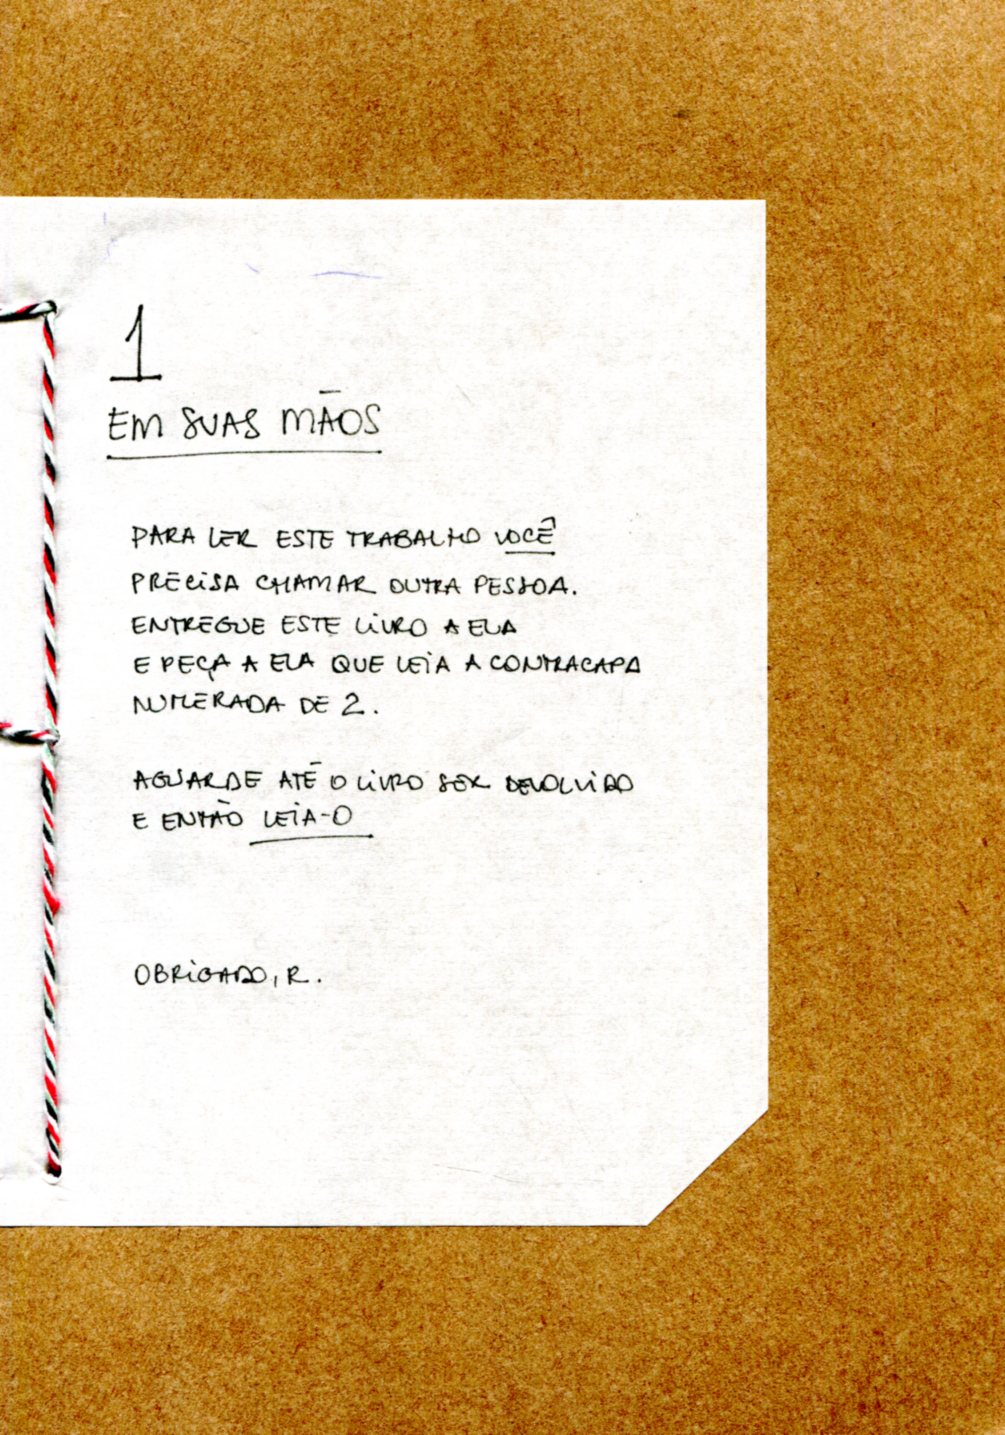 1
EM SUAS MÃOS
PARA LER ESTE TRABALHO VOCÊ
PRECISA CHAMAR OUTRA PESSOA.
ENTREGUE ESTE LIVRO A ELA
E PEÇA A ELA QUE LEIA A CONTRACAPA
NUMERADA DE 2.
AGUARDE ATÉ O LIVRO SER DEVOLVIDO
E ENTÃO LEIA-O
OBRIGADO, R.